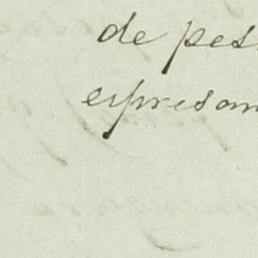 de pes
expresam